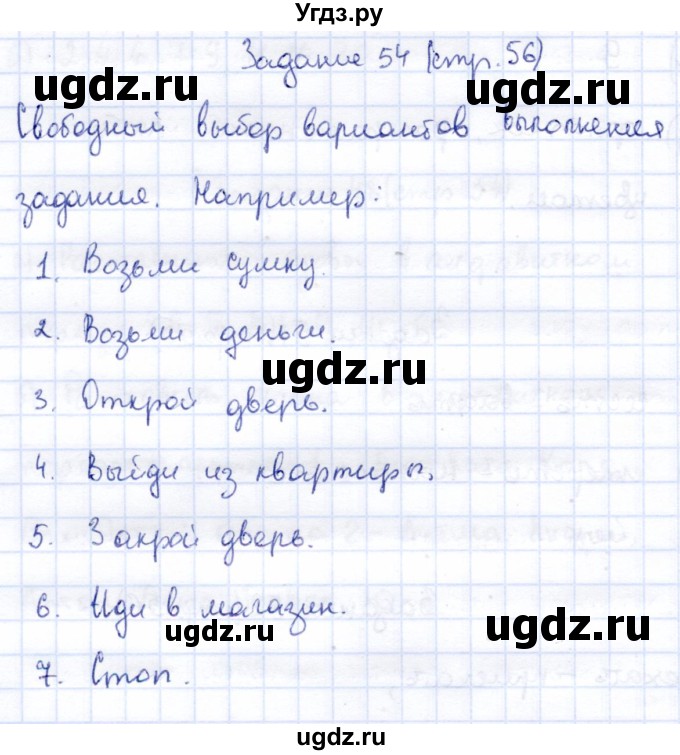 Угдз.ру
Задание 54 (стр. 56)
ugdz.ru
ugdz.ru
Свободный выбор вариантов выполнения
задания. Например:
ugdz.ru
1. Возьми сумку.
2. Возьми деньги.
ugdz.ru
3. Открой дверь.
4. Выйди из квартиры.
5. Закрой дверь.
6. Иди в магазин.
ugdz.ru
ugdz.ru
7. Стоп.
ugdz.ru